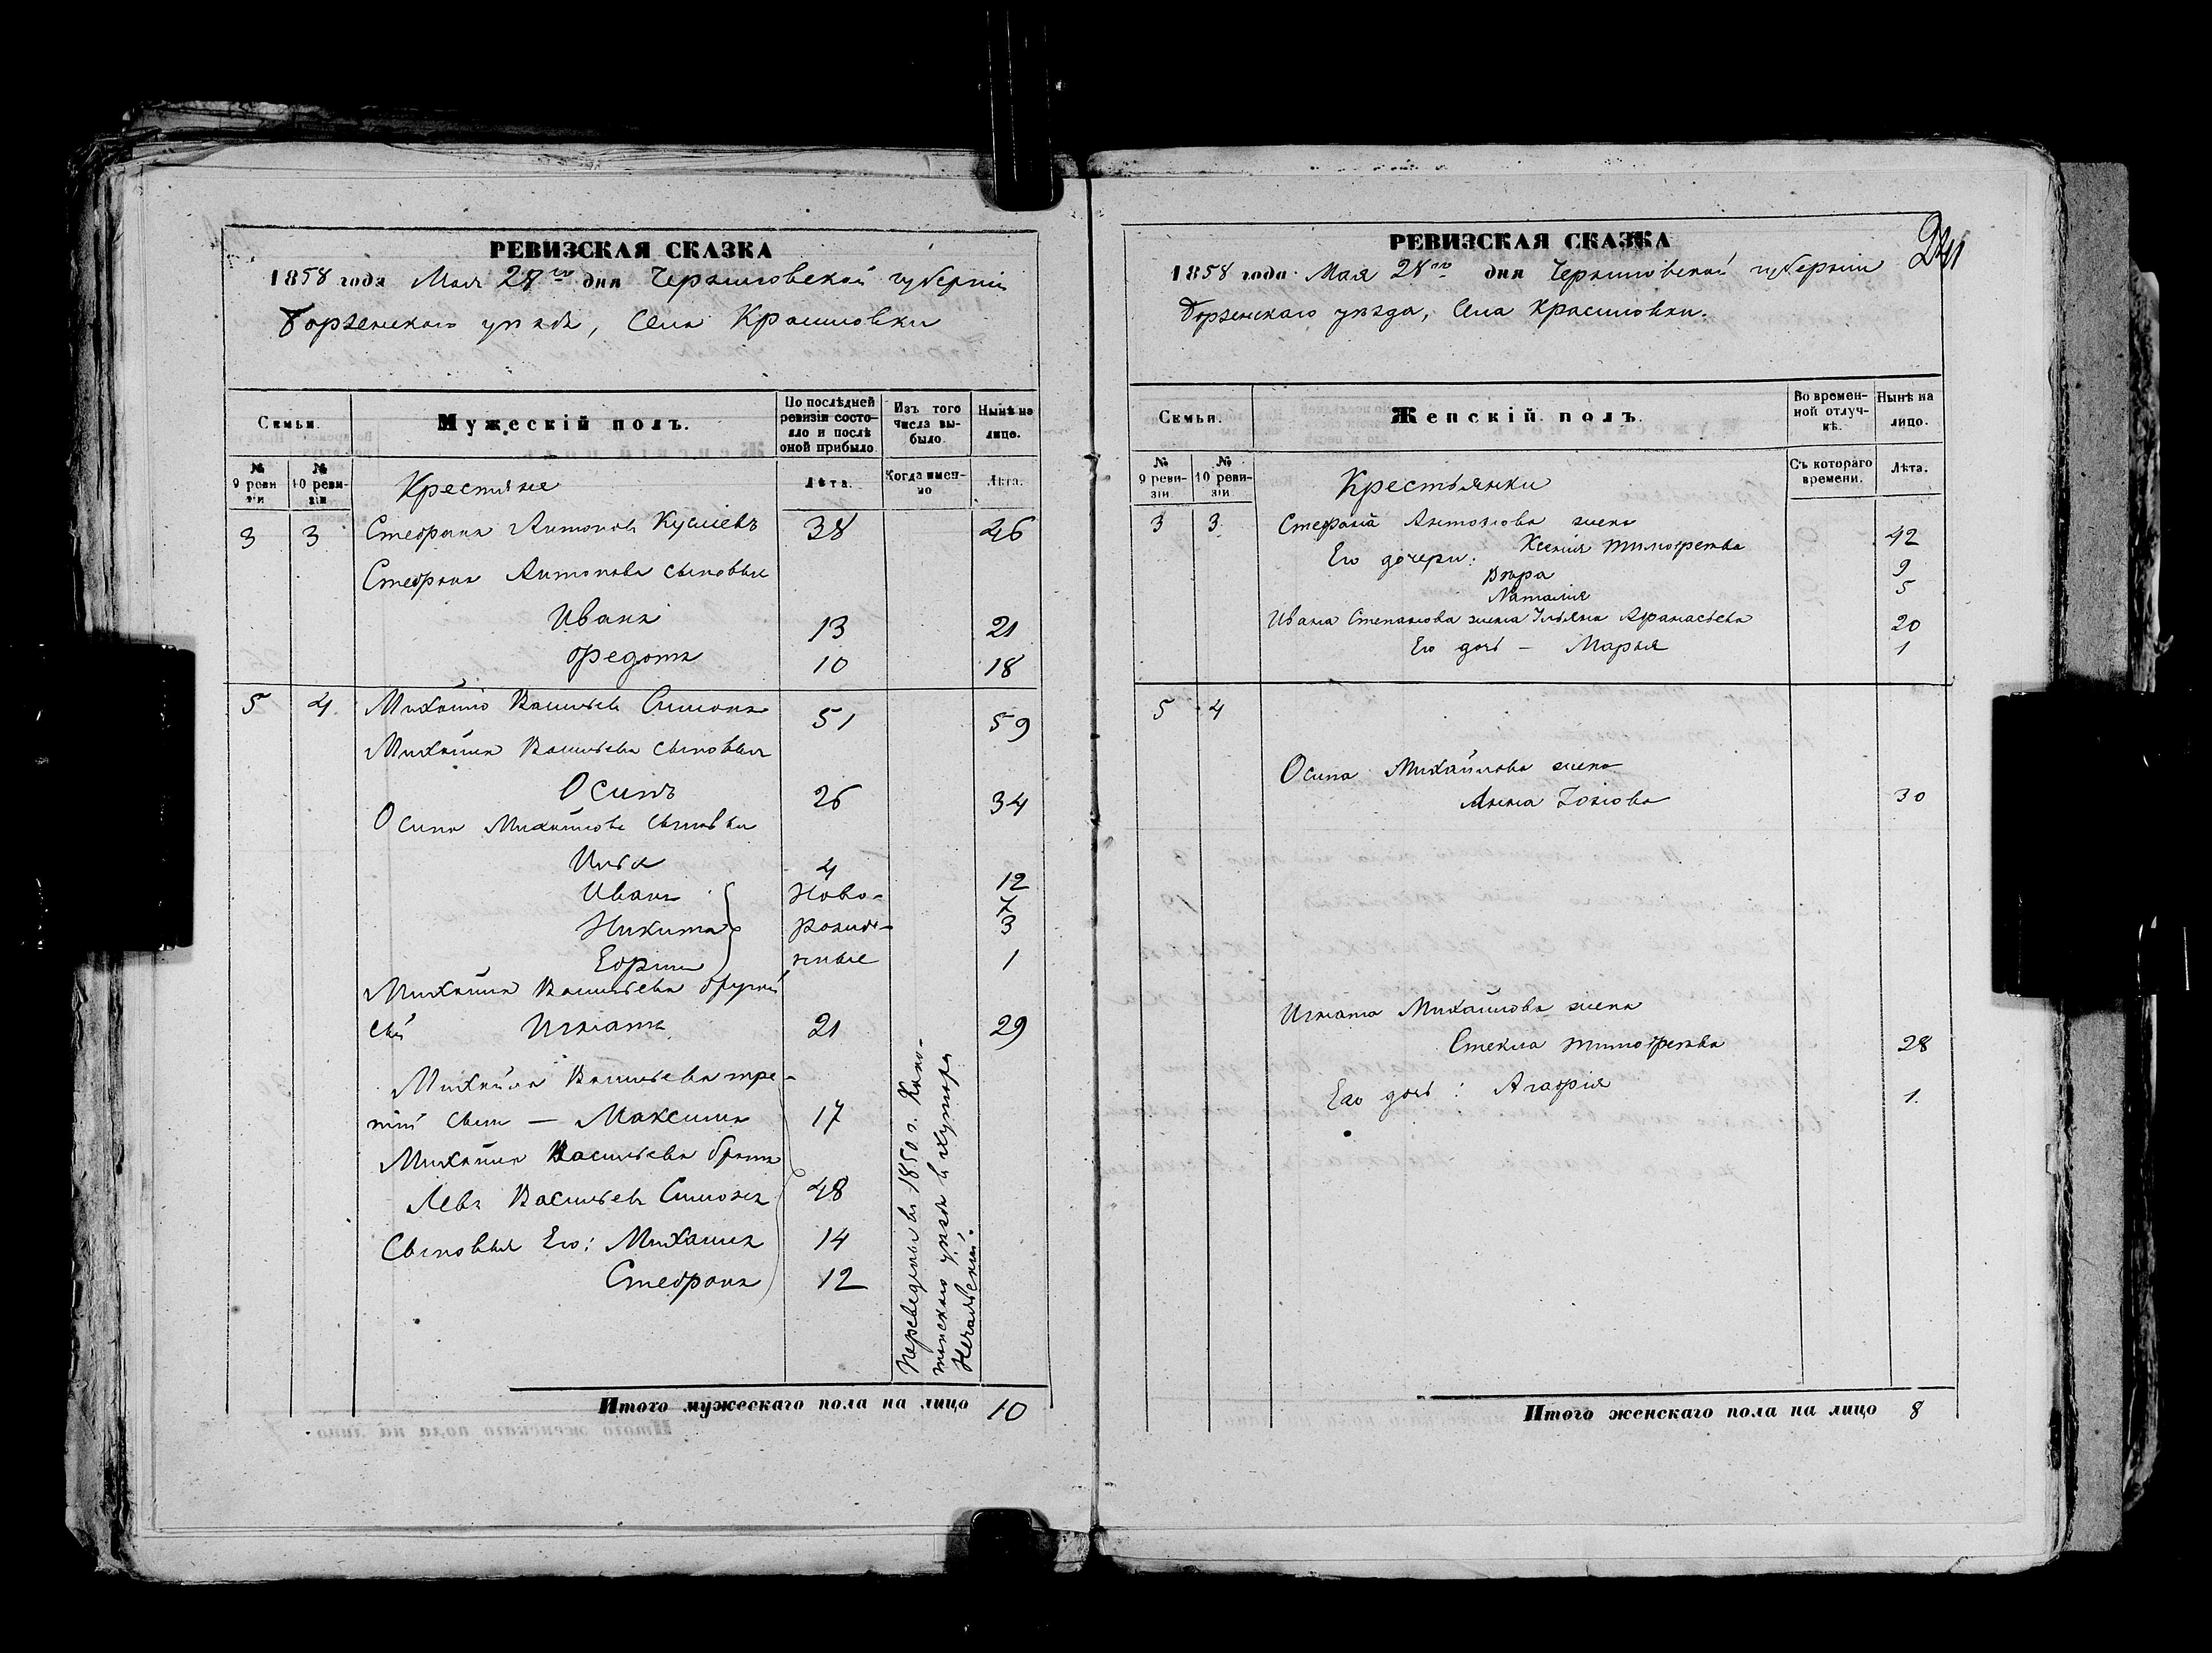 РЕВИЗСКАЯ СКАЗКА
1858 года Мая 28го дня Черниговской губернiи
Борзенскаго уѣзда, Села Красиловки
Семьи.
Мужескiй полъ.
По послѣдней ревизiи состояло и послѣ оной прибыло
Изъ того числа выбыло
Нынѣ на лицо.
№ 9 ревизiи
№ 10 ревизiи
Крестьяне
Лѣта.
Когда именно
Лѣта.
3 3 Стефанъ Антоновъ 38 46
Стефана Антонова сыновья
Иванъ 13 21
Федотъ 10 18
5 4 Михайло Васильевъ Симонъ 51 59
Михайла Васильева сыновья
Осипъ 26 34
Осипа Михайлова сыновья
Илья 4 12
Иванъ Ново- 7
Никита рожден- 3
Ефимъ ные 1
Михайла Васильева другой
сынъ Игнатъ 21 29
Михайла Васильева тре-
тiй сынъ — Максимъ 17
Михайла Васильева братъ
Левъ Васильевъ Симонъ 48
Сыновья Его: Михаилъ 14
Стефанъ 12
Переведены въ 1850 г. Коно-
топскаго уѣзда въ хуторъ
Итого мужескаго пола на лицо 10
РЕВИЗСКАЯ СКАЗКА
241
1858 года Мая 28го дня Черниговской губернiи
Борзенскаго уѣзда, Села Красиловки.
Семьи.
Женскiй полъ.
Во временной отлучкѣ.
Нынѣ на лицо.
№ 9 ревизiи
№ 10 ревизiи
Крестьянки
Съ котораго времени.
Лѣта.
3 3 Стефана Антонова жена
Ксенiя Тимофеева 42
Его дочери:
Вѣра 9
Наталия 5
Ивана Степанова жена Ульяна Афанасьева 20
Его дочь — Марья 1
5 4
Осипа Михайлова жена
Анна 30
Игната Михайлова жена
Текла Тимофеева 28
Его дочь: Агафiя 1.
Итого женскаго пола на лицо 8